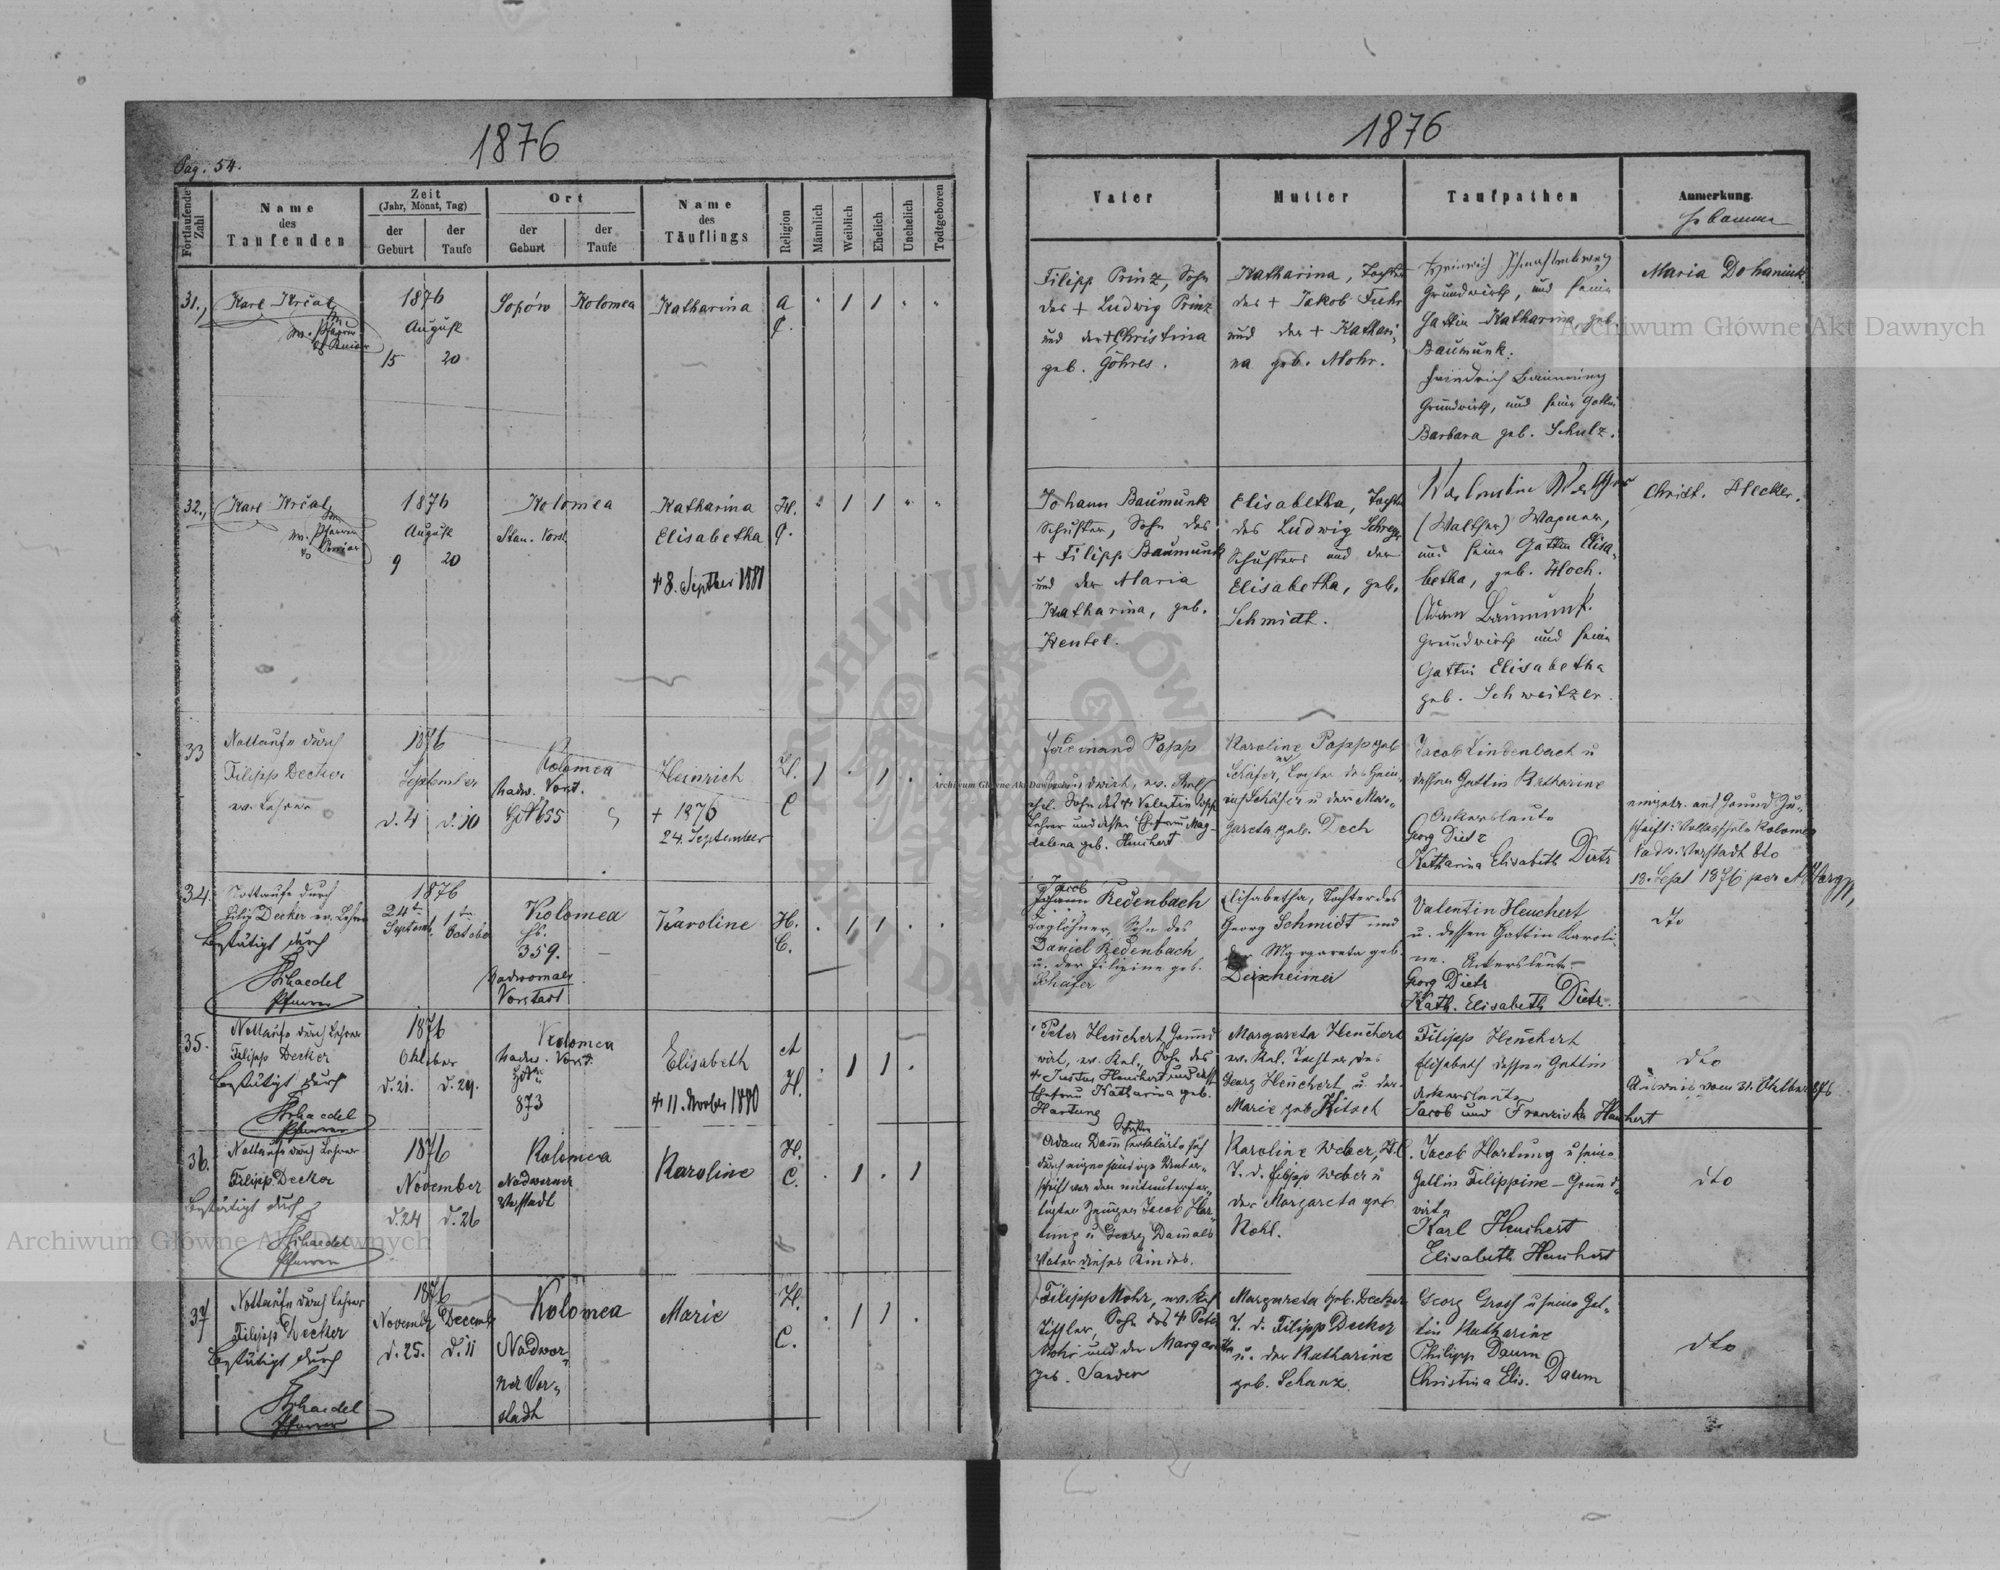 1876
Pag. 54.
Fortlaufende Zahl
Name des Taufenden
Zeit
(Jahr, Monat, Tag)
der Geburt
der Taufe
Ort
der Geburt
der Taufe
Name des Täuflings
Religion
Männlich
Weiblich
Ehelich
Unehelich
Todtgeboren
31.,
Karl Krčal
1876
August
15
20
Sopów
Kolomea
Katharina
32.,
Karl Krčal
1876
August
9
20
Kolomea
Stan. Vorst.
Katharina
Elisabetha
+ 8. Septber 1881
H.
33
Nottaufe durch
Filipp Decker
ev. Lehrer
1876
September
d. 4
d. 10
Kolomea
Nadw. Vorst.
Heinrich
+ 1876
24. September
H.
C
34.
Nottaufe durch
Filip Decker ev. Lehrer
Bestätigt durch
Schaedel
Pfarrer
1876
24ten
Septemb.
1ten
October
Kolomea
359.
Nadwornaer
Vorstadt
Karoline
H.
C.
35.
Nottaufe durch Lehrer
Filipp Decker
Bestätigt durch
Schaedel
Pfarrer
1876
Oktober
d. 21.
d. 29.
Kolomea
Nadw. Vorst.
873
Elisabeth
+ 11. Novber 1880
A
H.
36.
Nottaufe durch Lehrer
Filipp Decker
Bestätigt durch
Schaedel
Pfarrer
1876
November
d. 24
d. 26
Kolomea
Nadworner
Vorstadt
Karoline
H.
C.
37
Nottaufe durch Lehrer
Filipp Decker
Bestätigt durch
Schaedel
Pfarrer
1876
November
Decemb
d. 25.
d. 11
Kolomea
Nadwor-
ner Vor-
stadt
Marie
H.
C.
1876
Vater
Mutter
Taufpathen
Anmerkung.
Hebamme
Filipp Prinz, Sohn
des + Ludwig Prinz
und der + Christina
geb. Göhres.
Katharina, Tochter
des + Jakob Fuhr
und der + Kathari-
na geb. Mohr.
Heinrich
Grundwirth, und seine
Gattin Katharina geb.
Baumunk.
Friedrich
Grundwirth, und seine Gattin
Barbara geb. Schulz.
Maria Dohaniuk
Johann Baumunk
Schuster, Sohn des
+ Filipp Baumunk
und der Maria
Katharina, geb.
Hentel.
Elisabetha, Tochter
des Ludwig
Schusters und der
Elisabetha, geb.
Schmidt.
Valentin Walther
(Walther) Wagner,
und seine Gattin Elisa-
betha, geb. Hoch.
Adam Baumunk.
Grundwirth und seine
Gattin Elisabetha
geb. Schweitzer.
Christ. Hecker.
Ferdinand Popp
Lehrer und dessen Ehefrau Mag-
dalena geb. Heuchert
Karoline Popp geb
Schäfer, Tochter des Hein-
rich Schäfer u der Mar-
gareta geb. Dech
Jacob Lindenbach u
dessen Gattin Katharine
Ackersleute
Georg Dietz
Katharina Elisabeth Dietz
eingetr. auf Grund Zu-
schrift: Volksschule Kolomea
Nadw. Vorstadt dto
18. Sept 1876 per
Jacob
Johann Redenbach
Taglöhner, Sohn des
Daniel Redenbach
u. der Filipine geb.
Schäfer
Elisabetha, Tochter des
Georg Schmidt und
der Margareta geb.
Dexheimer
Valentin Heuchert
u. dessen Gattin Karoli-
ne. Ackersleute.
Georg Dietz
Kath. Elisabeth Dietz.
dto
Peter Heuchert, Grund-
wirt, ev. Ref., Sohn des
+ Justus Heuchert und dess
Ehefrau Katharina geb.
Hartung
Margareta Heuchert
ev. Ref. Tochter des
Georg Heuchert u. der
Marie geb Kitsch
Filipp Heuchert
Elisabeth dessen Gattin
Ackersleute
Jacob und Franziska Heuchert
dto
Ausweis vom 31. Oktober 876
Schuster
Adam Daum erklärte sich
durch eigenhändige Unter-
schrift vor den mitunterfer-
tigten Zeugen Jacob Har-
tung u Georg Daum als
Vater dieses Kindes.
Karoline Weber, H.C.
T. d. Filipp Weber u
der Margareta geb
Kohl.
Jacob Hartung u seine
Gattin Filippine - Grund-
wirt
Karl Heuchert
Elisabeth Heuchert
dto
Filipp Mohr, ev. Ref
Tischler, Sohn des + Peter
Mohr und der Margaretha
geb. Sander
Margareta geb. Decker
T. d. Filipp Decker
u. der Katharine
geb. Schanz.
Georg Gross u seine Gat-
tin Katharine
Philipp Daum
Christina Elis. Daum
dto
Archiwum Główne Akt Dawnych
Archiwum Główne Akt Dawnych
Archiwum Główne Akt Dawnych